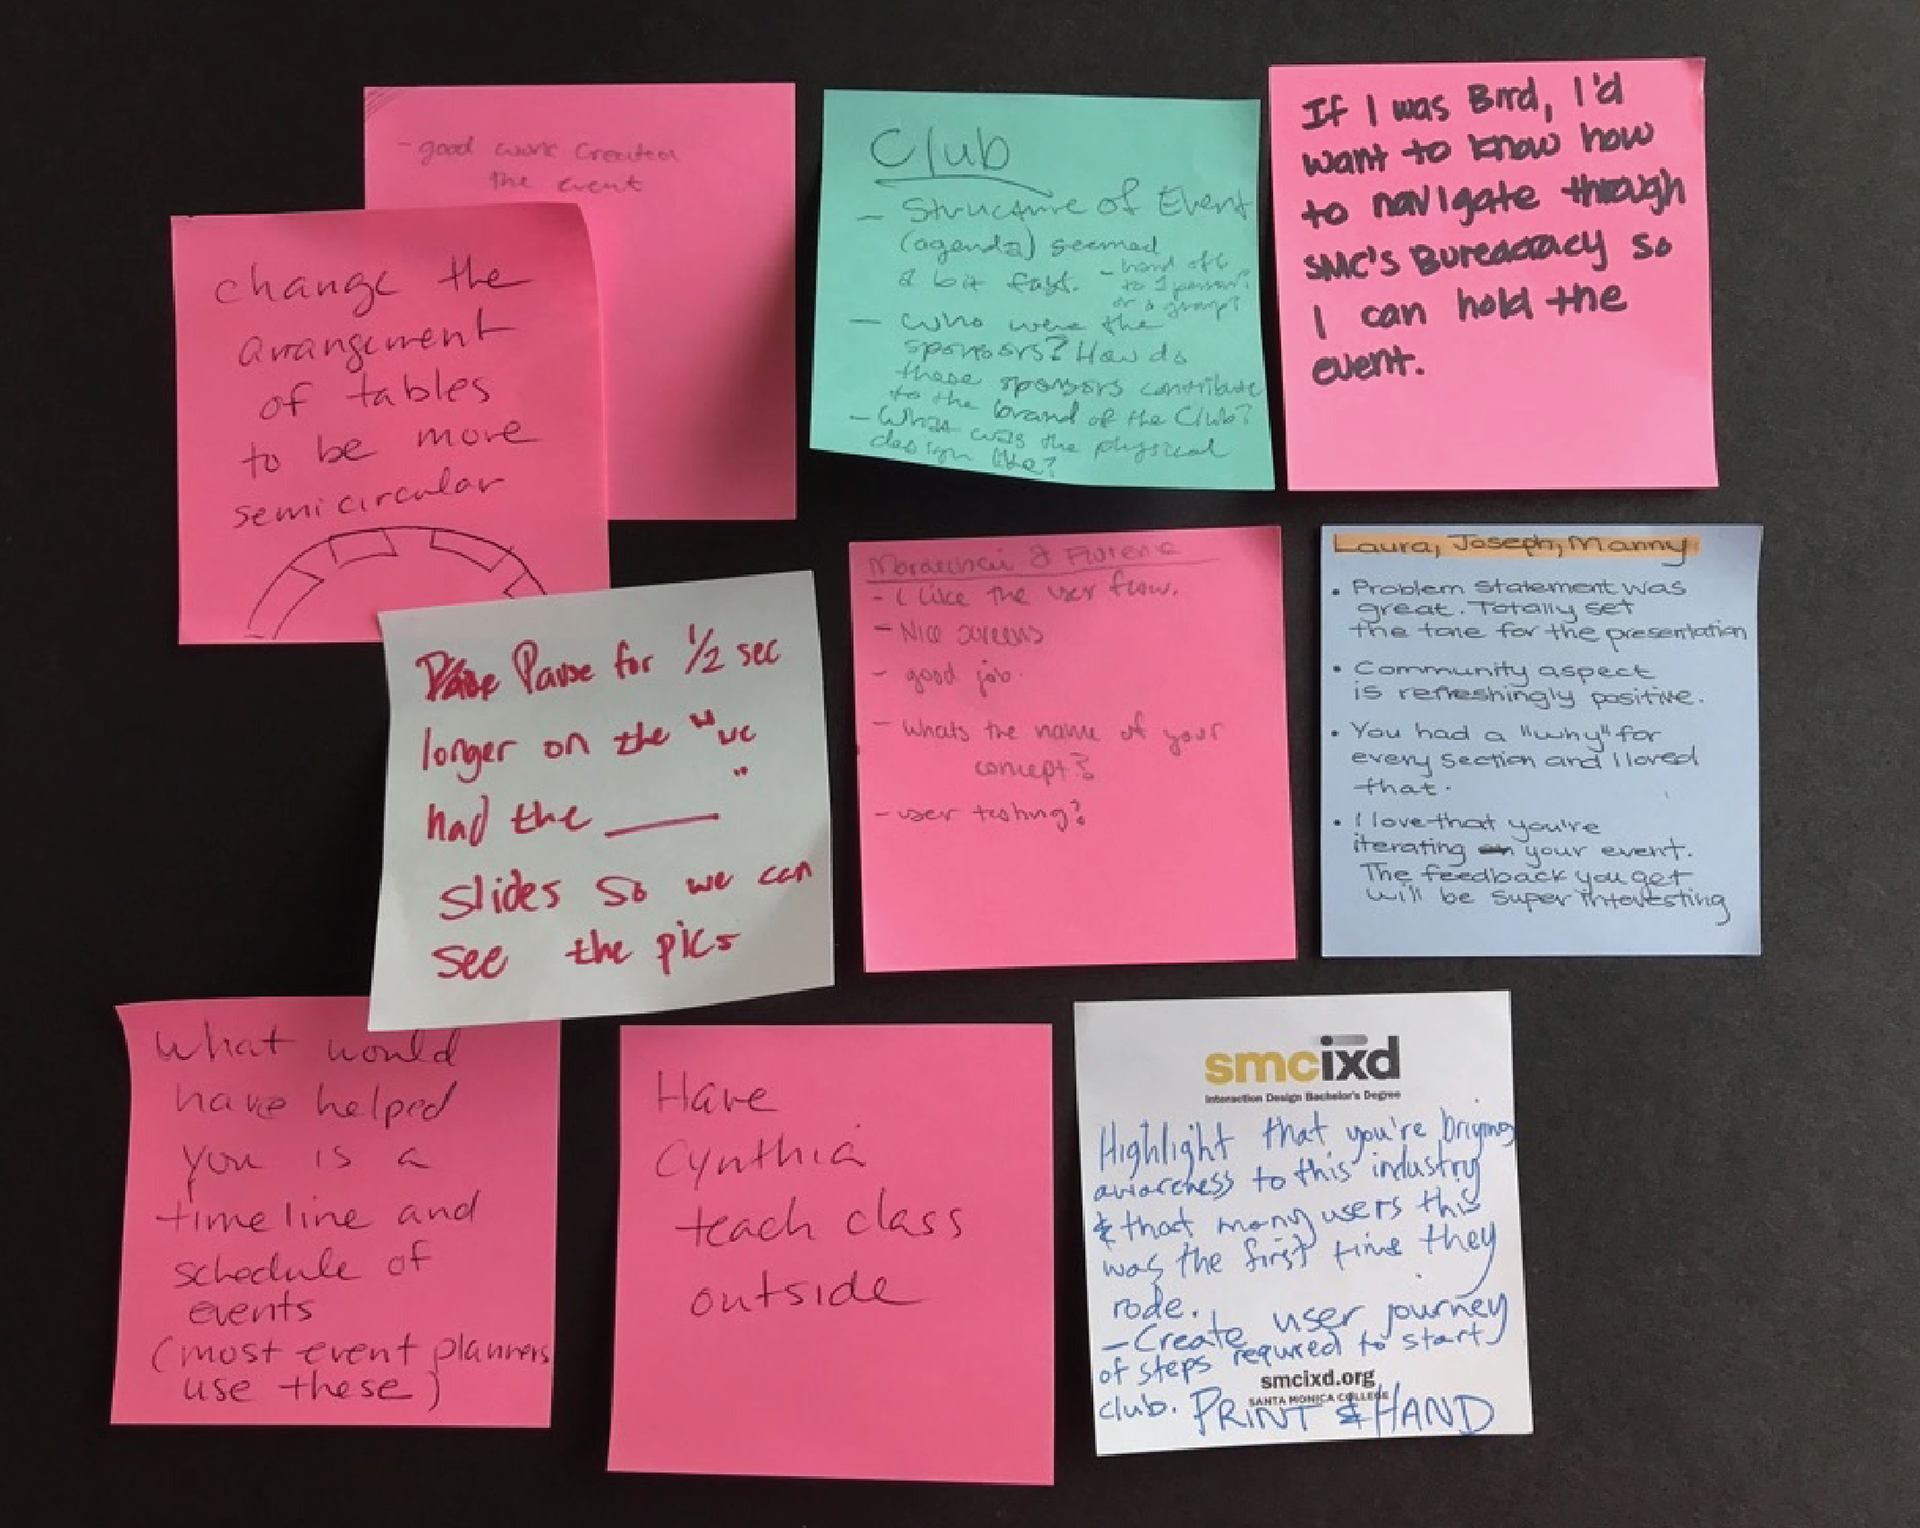 - good work created
the event
change the
arrangement
of tables
to be more
semicircular
Club
- Structure of Event
(agenda) seemed
a bit fast.
- hand off
to 1 person?
or a group?
- Who were the
sponsors? How do
these sponsors contribute
to the brand of the Club?
- What was the physical
design like?
If I was Bird, I'd
want to know how
to navigate through
SMC's Bureacracy so
I can hold the
event.
Pause for 1/2 sec
longer on the "we
had the ____ "
slides so we can
see the pics
Mordechai &
- I like the user flow.
- Nice screens
- good job.
- whats the name of your
concept?
- user testing?
Laura, Joseph, Manny
• Problem statement was
great. Totally set
the tone for the presentation
• Community aspect
is refreshingly positive.
• You had a "why" for
every section and I loved
that.
• I love that you're
iterating your event.
The feedback you get
will be super interesting
What would
have helped
you is a
timeline and
schedule of
events
(most event planners
use these)
Have
Cynthia
teach class
outside
smcixd
Interaction Design Bachelor's Degree
Highlight that you're bringing
awareness to this industry
& that many users this
was the first time they
rode.
- Create user journey
of steps required to start
club. PRINT & HAND
smcixd.org
SANTA MONICA COLLEGE